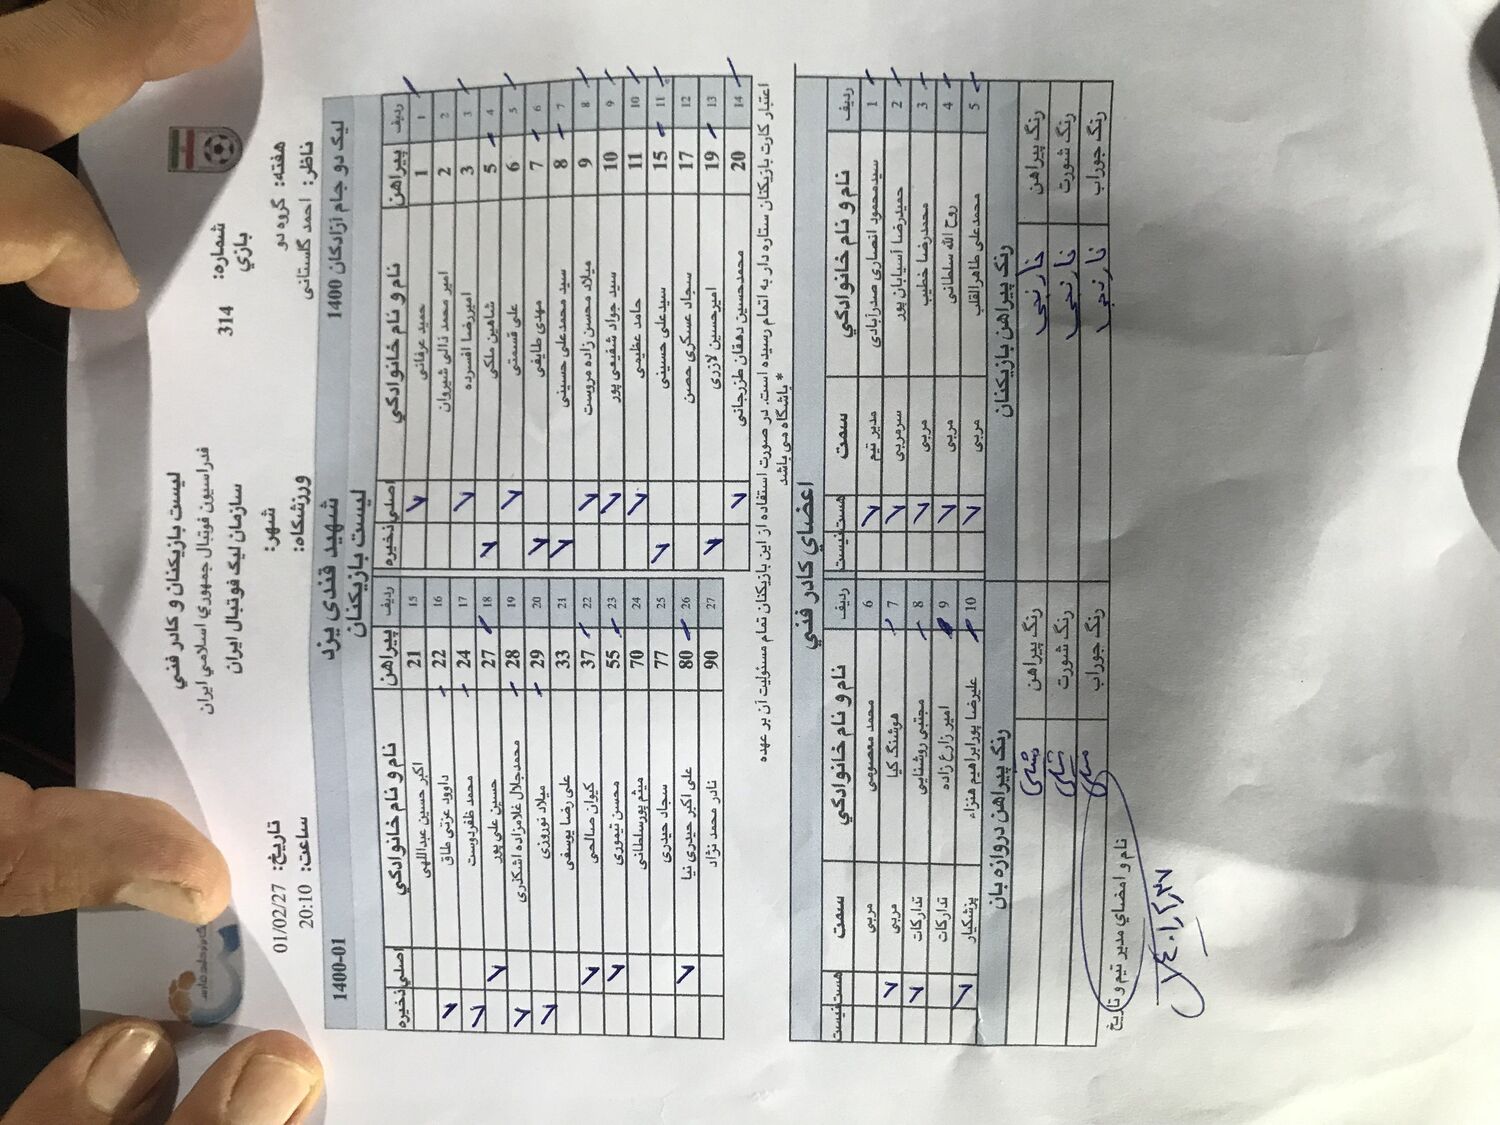 لیست بازیکنان و کادر فني
فدراسیون فوتبال جمهوري اسلامي ایران
سازمان لیگ فوتبال ایران
شماره: 314
بازي
شهر:
تاریخ: 01/02/27
هفته: گروه دو
ناظر: احمد گلستانی
ورزشگاه:
ساعت: 20:10
لیگ دو جام آزادگان 1400
شهید قندی یزد
1400-01
لیست بازیکنان
ردیف پیراهن نام و نام خانوادگي اصلي ذخیره
1 1 حمید عرفانی
2 2 امیر محمد ذالی شیروان
3 3 امیررضا افسرده
4 5 شاهین ملکی
5 6 علی قسمتی
6 7 مهدی طایفی
7 8 سید محمدعلی حسینی
8 9 میلاد محسن زاده مروست
9 10 سید جواد شفیعی پور
10 11 حامد عظیمی
11 15 سیدعلی حسینی
12 17 سجاد عسکری حصن
13 19 امیرحسین لازری
14 20 محمدحسین دهقان طزرجانی
ردیف پیراهن نام و نام خانوادگي اصلي ذخیره
15 21 اکبر حسین عبداللهی
16 22 داوود عزتی طاق
17 24 محمد ظفردوست
18 27 حسین علی پور
19 28 محمدجلال غلامزاده اشکذری
20 29 میلاد نوروزی
21 33 علی رضا یوسفی
22 37 کیوان صالحی
23 55 محسن تیموری
24 70 میثم پورسلطانی
25 77 سجاد حیدری
26 80 علی اکبر حیدری نیا
27 90 نادر محمد نژاد
اعتبار کارت بازیکنان ستاره دار به اتمام رسیده است. در صورت استفاده از این بازیکنان تمام مسئولیت آن بر عهده
* باشگاه می باشد
اعضاي کادر فني
ردیف نام و نام خانوادگي سمت هست نیست
1 سیدمحمود انصاری صدرآبادی مدیر تیم
2 حمیدرضا آسیابان پور سرمربی
3 محمدرضا خطیب مربی
4 روح الله سلطانی مربی
5 محمدعلی طاهرالقلب مربی
ردیف نام و نام خانوادگي سمت هست نیست
6 محمد معصومی مربی
7 هوشنگ کیا مربی
8 مجتبی روشنایی تدارکات
9 امیر زارع زاده تدارکات
10 علیرضا پورابراهیم هنزاء پزشکیار
رنگ پیراهن بازیکنان
رنگ پیراهن نارنجی
رنگ شورت نارنجی
رنگ جوراب نارنجی
رنگ پیراهن دروازه بان
رنگ پیراهن مشکی
رنگ شورت مشکی
رنگ جوراب مشکی
نام و امضاي مدیر تیم و تاریخ